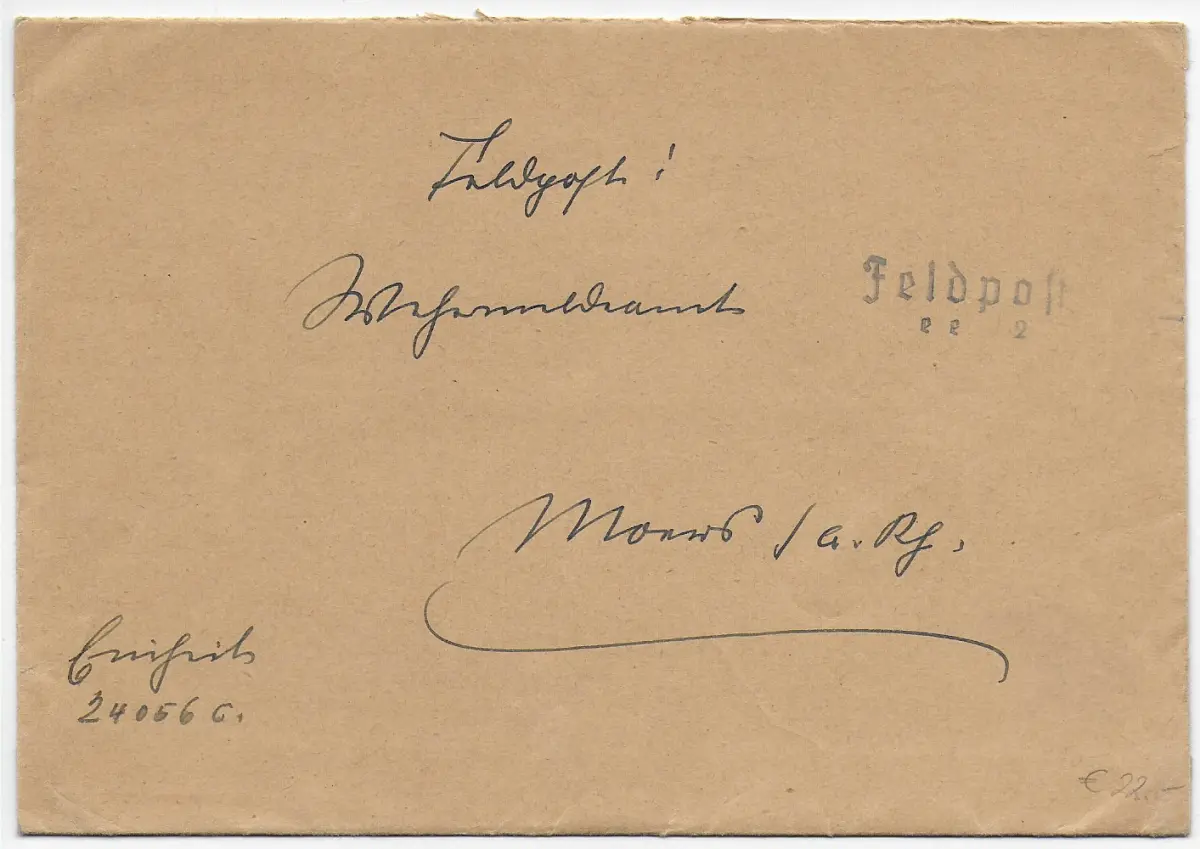 Feldpost!
Wehrmeldeamt
Feldpost
e e 2
Moers /a. Rh.
Einheit
24056 C.
€ 22.-